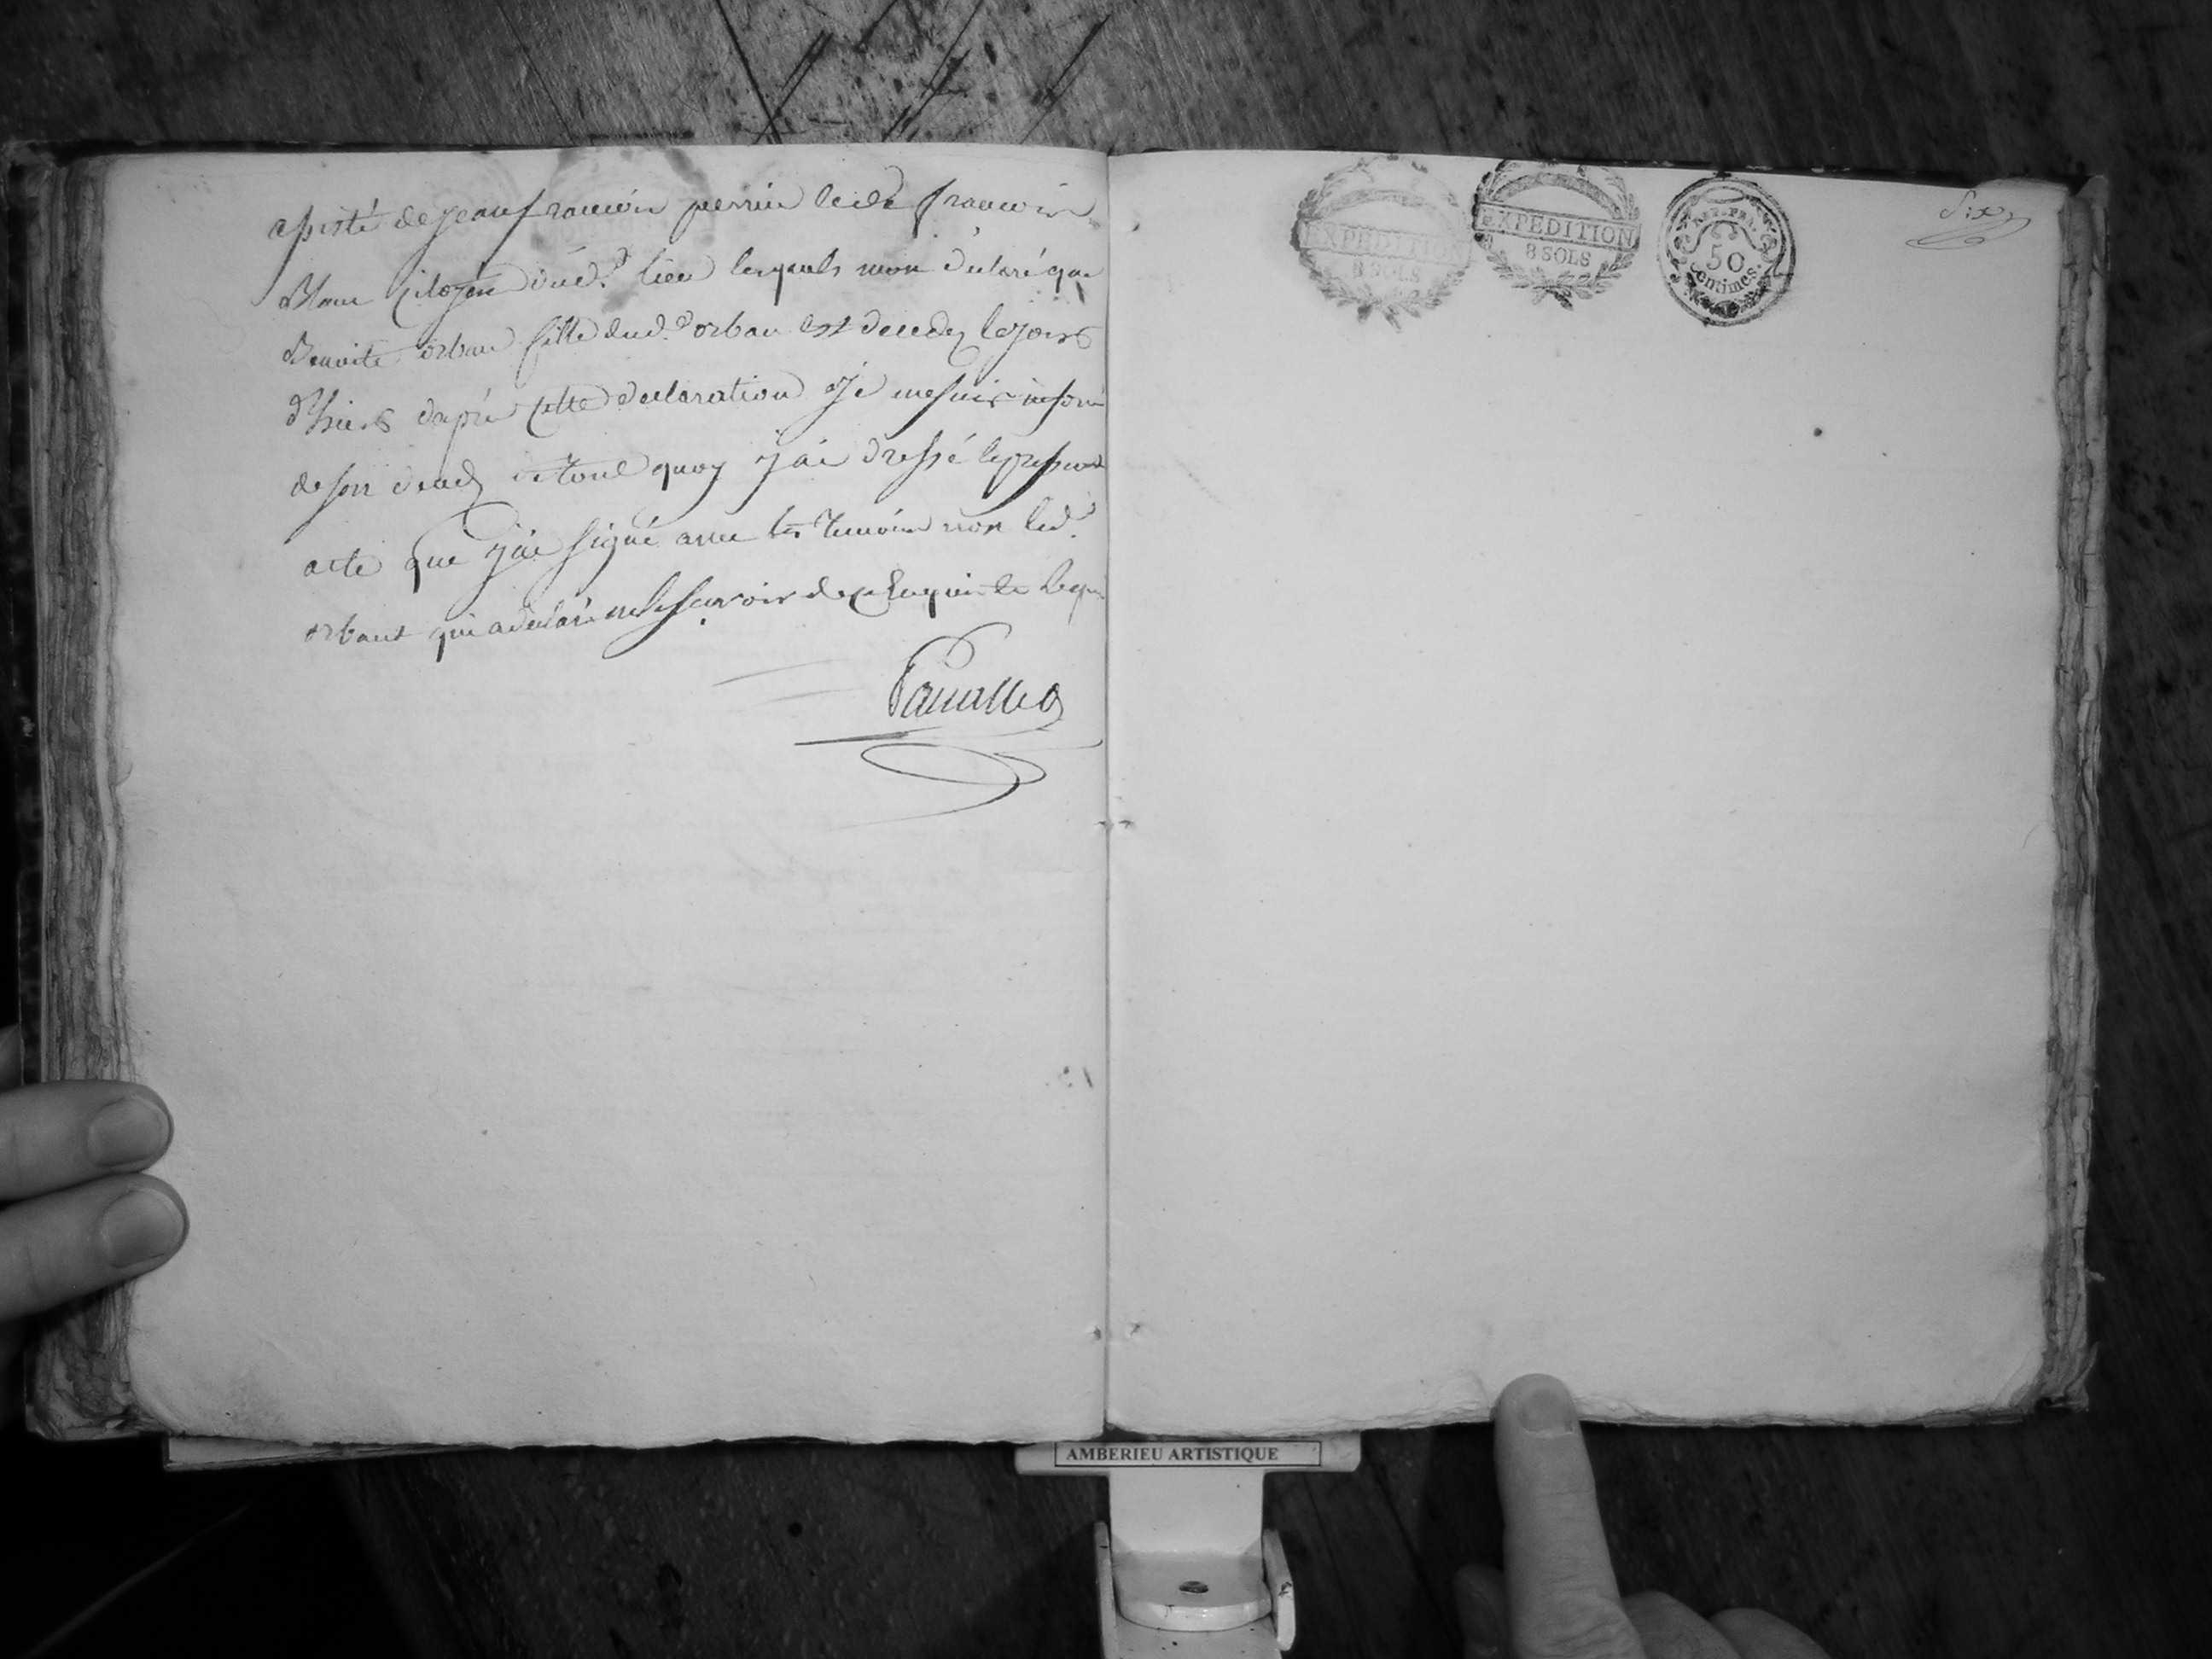 assisté de jean francois perrin et de francois
Blanc citoyen dud.t lieu lesquels mon déclaré que
Benoite orban fille dud.t orban est decedez le jour
d'hier dapré cette declaration je me suis informé
de son deces de tout quoy j'ai dressé le present
acte que j'ai signé avec les temoins non led.t
orbant qui a declaré ne scavoir de ce Enquis et Requi
EXPEDITION
8 SOLS
EXPEDITION
8 SOLS
50
Centimes.
Six
AMBERIEU ARTISTIQUE